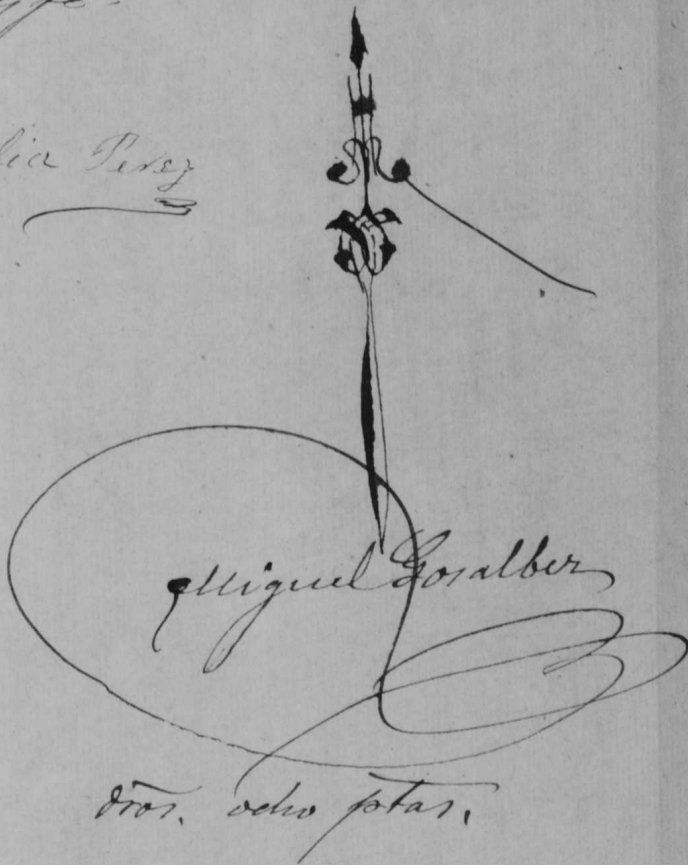 Perez
Miguel Gosalbez
dros. ocho ptas.